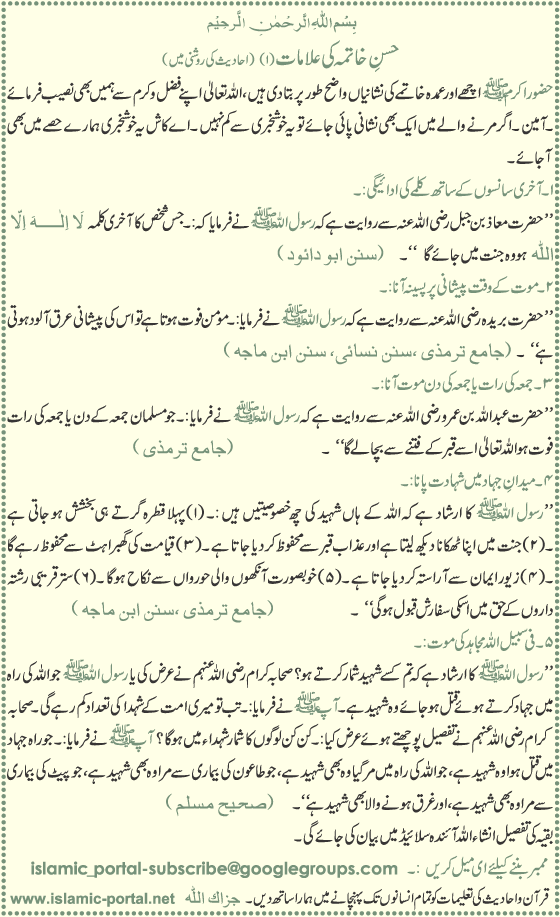 بِسْمِ اللهِ الرَّحْمٰنِ الرَّحِيْمِ
حسنِ خاتمہ کی علامات (۱) (احادیث کی روشنی میں)
حضور اکرم ﷺ اچھے اور عمدہ خاتمے کی نشانیاں واضح طور پر بتا دی ہیں، اللہ تعالیٰ اپنے فضل و کرم سے ہمیں بھی نصیب فرمائے
۔ آمین ۔ اگر مرنے والے میں ایک بھی نشانی پائی جائے تو یہ خوشخبری سے کم نہیں ۔ اے کاش یہ خوشخبری ہمارے حصے میں بھی
آجائے ۔
۱۔ آخری سانسوں کے ساتھ کلمے کی ادائیگی:۔
’’حضرت معاذ بن جبل رضی اللہ عنہ سے روایت ہے کہ رسول اللہ ﷺ نے فرمایا کہ:۔ جس شخص کا آخری کلمہ لَا اِلٰـــہَ اِلَّا
اللّٰہ ہو وہ جنت میں جائے گا ‘‘۔ (سنن ابو دائود)
۲۔ موت کے وقت پیشانی پر پسینہ آنا:۔
’’حضرت بریدہ رضی اللہ عنہ سے روایت ہے کہ رسول اللہ ﷺ نے فرمایا:۔ مؤمن فوت ہوتا ہے تو اس کی پیشانی عرق آلود ہوتی
ہے‘‘ ۔ (جامع ترمذی ،سنن نسائی، سنن ابن ماجہ)
۳۔ جمعہ کی رات یا جمعہ کی دن موت آنا:۔
’’حضرت عبداللہ بن عمرو رضی اللہ عنہ سے روایت ہے کہ رسول اللہ ﷺ نے فرمایا:۔ جو مسلمان جمعہ کے دن یا جمعہ کی رات
فوت ہو اللہ تعالیٰ اسے قبر کے فتنے سے بچالے گا‘‘ ۔ (جامع ترمذی)
۴۔ میدانِ جہاد میں شہادت پانا:۔
’’رسول اللہ ﷺ کا ارشاد ہے کہ اللہ کے ہاں شہید کی چھ خصوصیتیں ہیں :۔ (۱) پہلا قطرہ گرتے ہی بخشش ہو جاتی ہے
۔ (۲) جنت میں اپنا ٹھکانا دیکھ لیتا ہے اور عذاب قبر سے محفوظ کر دیا جاتا ہے ۔ (۳) قیامت کی گھبراہٹ سے محفوظ رہے گا
۔ (۴) زیور ایمان سے آراستہ کر دیا جاتا ہے ۔ (۵) خوبصورت آنکھوں والی حوروں سے نکاح ہوگا ۔ (۶) ستر قریبی رشتہ
داروں کے حق میں اسکی سفارش قبول ہوگی‘‘ ۔ (جامع ترمذی ،سنن ابن ماجہ)
۵۔ فی سبیل اللہ مجاہد کی موت:۔
’’رسول اللہ ﷺ کا ارشاد ہے کہ تم کسے شہید شمار کرتے ہو؟ صحابہ کرام رضی اللہ عنہم نے عرض کی یا رسول اللہ ﷺ جو اللہ کی راہ
میں جہاد کرتے ہوئے قتل ہو جائے وہ شہید ہے ۔ آپ ﷺ نے فرمایا:۔ تب تو میری امت کے شہدا کی تعداد کم رہے گی ۔ صحابہ
کرام رضی اللہ عنہم نے تفصیل پوچھتے ہوئے عرض کیا:۔ کن کن لوگوں کا شمار شہداء میں ہوگا ؟ آپ ﷺ نے فرمایا:۔ جو راہ جہاد
میں قتل ہوا وہ شہید ہے، جو اللہ کی راہ میں مر گیا وہ بھی شہید ہے، جو طاعون کی بیماری سے مرا وہ بھی شہید ہے، جو پیٹ کی بیماری
سے مرا وہ بھی شہید ہے، اور غرق ہونے والا بھی شہید ہے‘‘ ۔ (صحیح مسلم)
بقیہ کی تفصیل انشاء اللہ آئندہ سلائیڈ میں بیان کی جائے گی ۔
ممبر بننے کیلئے ای میل کریں :۔ islamic_portal-subscribe@googlegroups.com
قرآن و احادیث کی تعلیمات کو تمام انسانوں تک پہنچانے میں ہمارا ساتھ دیں ۔ جزاک اللہ www.islamic-portal.net